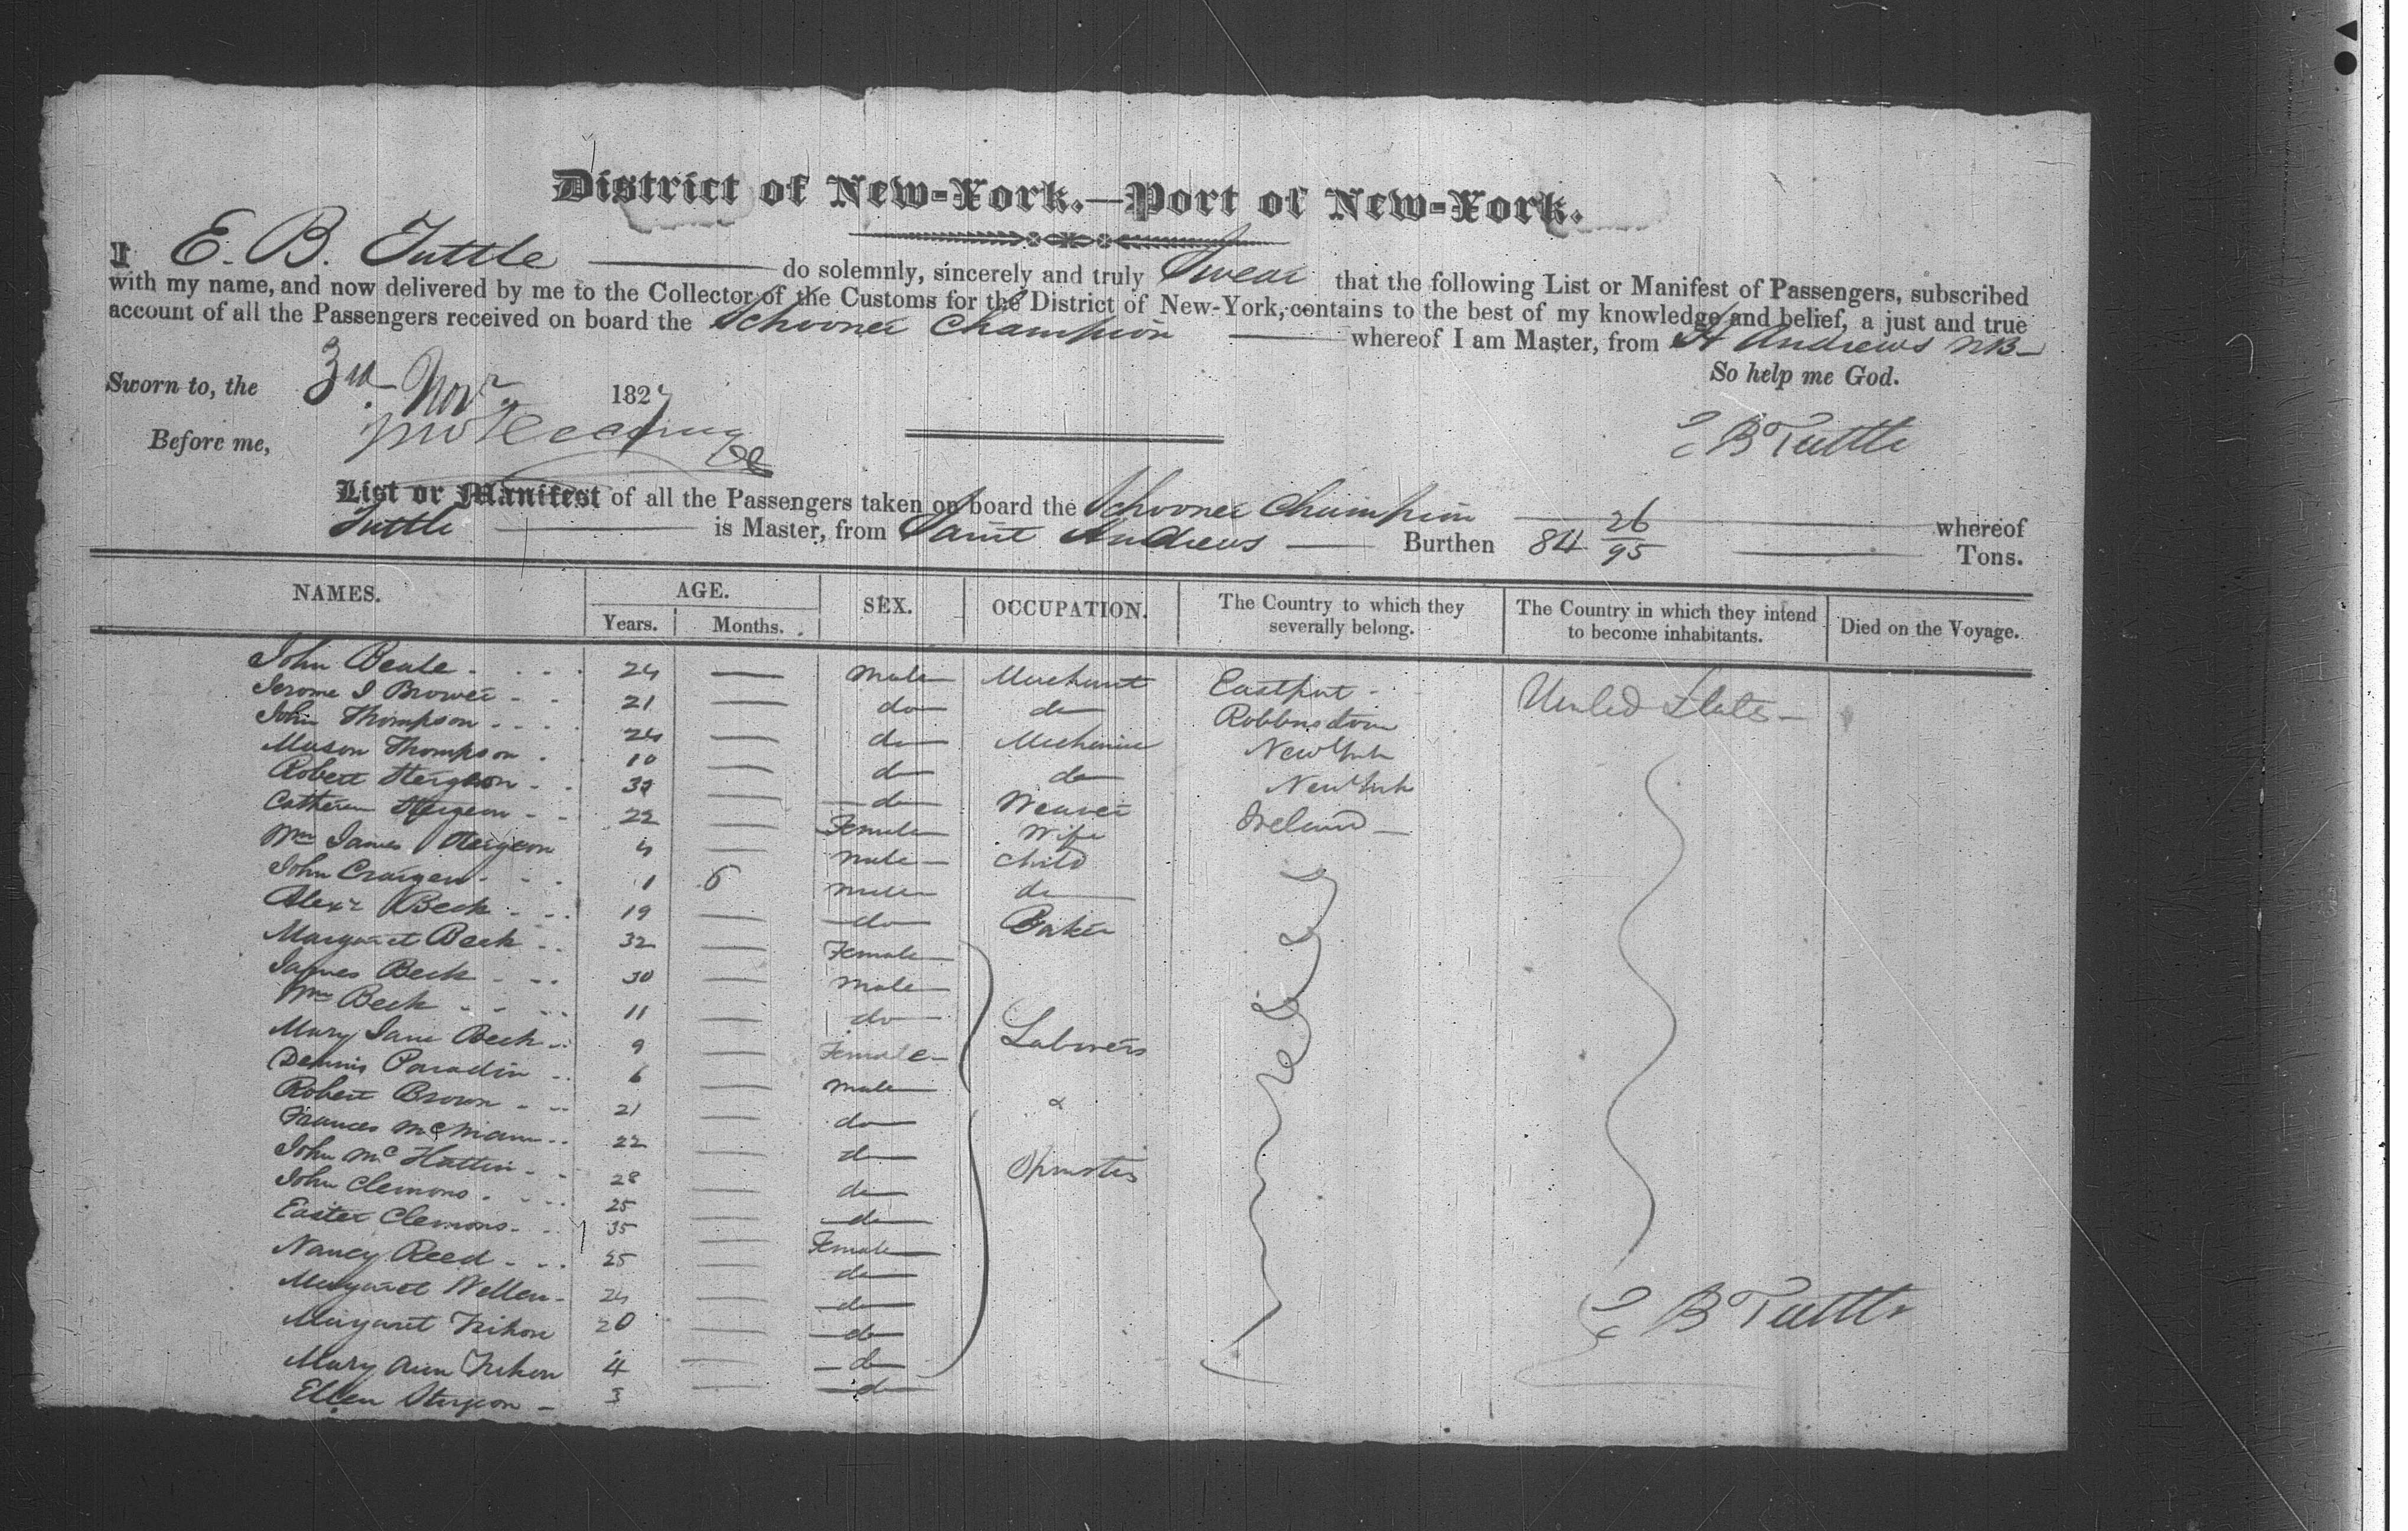 District of New-York.—Port of New-York.
I E. B. Tuttle do solemnly, sincerely and truly Swear that the following List or Manifest of Passengers, subscribed
with my name, and now delivered by me to the Collector of the Customs for the District of New-York, contains to the best of my knowledge and belief, a just and true
account of all the Passengers received on board the Schooner Champion whereof I am Master, from St Andrews NB
So help me God.
Sworn to, the 3rd Novr 1827
E B Tuttle
Before me,
List or Manifest of all the Passengers taken on board the Schooner Champion whereof
Tuttle is Master, from Saint Andrews Burthen 84 26/95 Tons.
NAMES. AGE. Years. Months. SEX. OCCUPATION. The Country to which they severally belong. The Country in which they intend to become inhabitants. Died on the Voyage.
John Beale 24 — male Merchant Eastport United States
Jerome J Brower 21 — do do Robbinstown
John Thompson 24 — do Mechanic New York
Mason Thompson 10 — do do New York
Robert 32 — do Weaver Ireland
Catherin 22 — Female Wife
Wm James 4 — male child
John Craigen 1 6 male do
Alexr Beck 19 — do Baker
Margaret Beck 32 — Female
James Beck 30 — male
Wm Beck 11 — do
Mary Jane Beck 9 — Female Laborers
Dennis Paradin 6 — male
Robert Brown 21 — do &
Frances 22 — do
John Mc 28 — do Spinsters
John Clemons 25 — do
Easter Clemons 35 — Female
Nancy Reed 25 — do
Margaret 24 — do
Margaret 20 — do
Mary Ann 4 — do
Ellen Sturgeon 3 — do
E B Tuttle